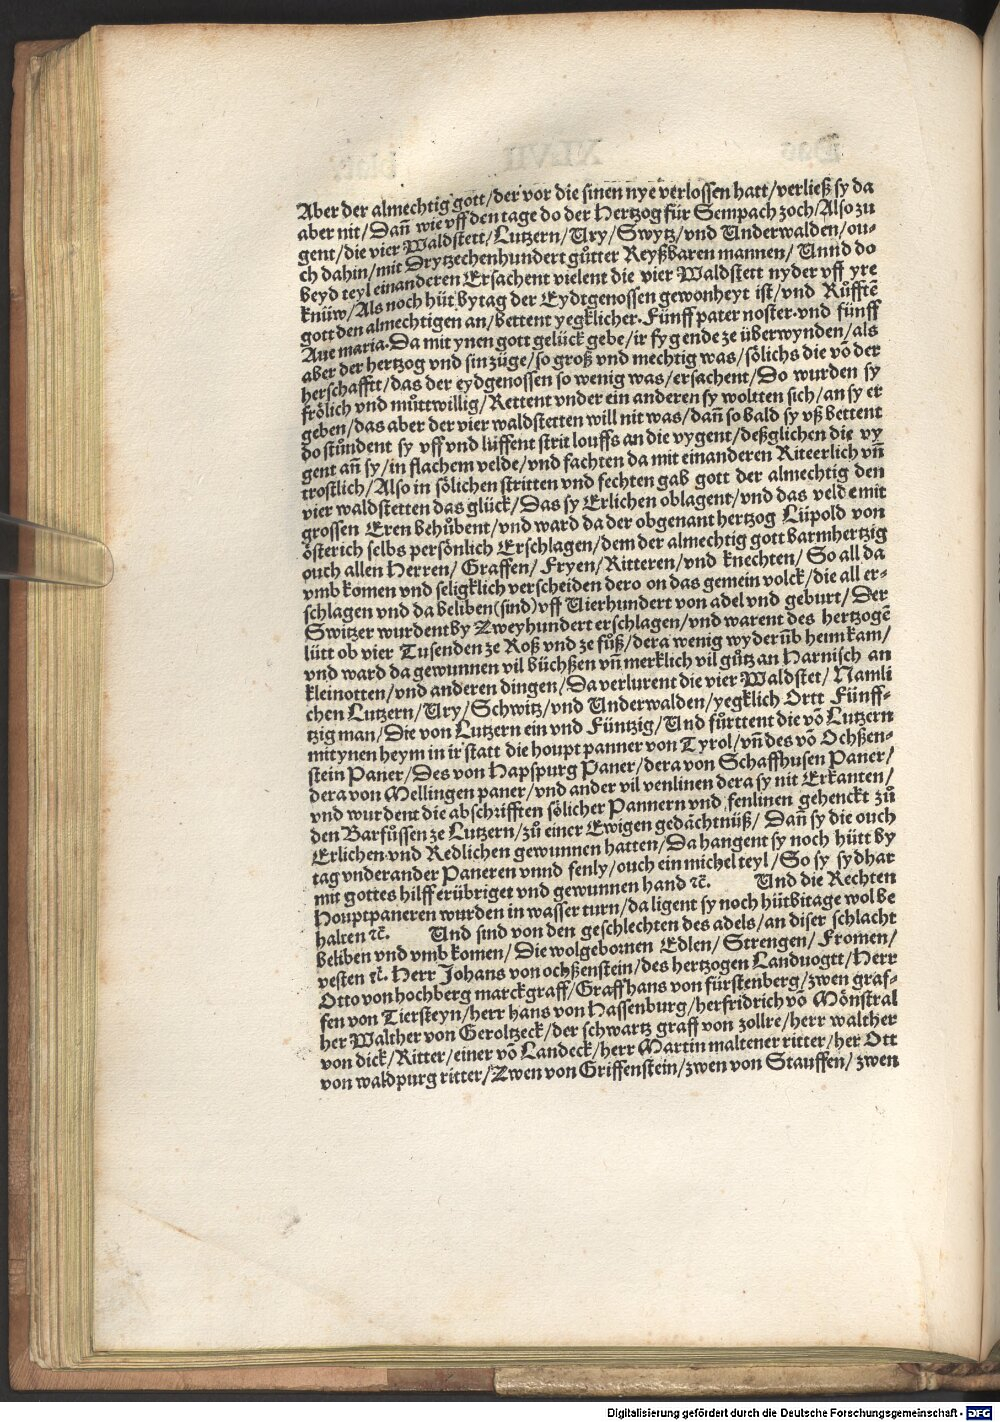 Aber der almechtig gott/der vor die sinen nye verlossen hatt/verließ sy da
aber nit/Dañ wie vff den tage do der Hertzog für Sempach zoch/Also zu
gent/die vier Waldstett/Lutzern/Ury/Swytz/vnd Underwalden/ou-
ch dahin/mit Drytzechenhundert gůtter Reyßbaren mannen/Unnd do
beyd teyl einanderen Ersachent vielent die vier Waldstett nyder vff yre
knüw/Als noch hüt bytag der Eydtgenossen gewonheyt ist/vnd Růfftē
gott den almechtigen an/bettent yegklicher.Fünff pater noster.vnd fünff
Aue maria.Da mit ynen gott gelück gebe/ir fygende ze überwynden/als
aber der hertzog vnd sin züge/so groß vnd mechtig was/sölichs die vō der
herschafft/das der eydgenossen so wenig was/ersachent/Do wurden sy
frölich vnd můttwillig/Rettent vnder ein anderen sy woltten sich/an sy er
geben/das aber der vier waldstetten will nit was/dañ so bald sy vß bettent
do stůndent sy vff vnd lüffent strit louffs an die vygent/deßglichen die vy
gent añ sy/in flachem velde/vnd fachten da mit einanderen Riteerlich vñ
trostlich/Also in sölichen stritten vnd fechten gab gott der almechtig den
vier waldstetten das glück/Das sy Erlichen oblagent/vnd das veld emit
grossen Eren behůbent/vnd ward da der obgenant hertzog Lüpold von
österich selbs persönlich Erschlagen/dem der almechtig gott barmhertzig
ouch allen Herren/Graffen/Fryen/Ritteren/vnd knechten/So all da
vmb komen vnd seligklich verscheiden dero on das gemein volck/die all er-
schlagen vnd da beliben(sind)vff Uierhundert von adel vnd geburt/Der
Switzer wurdent by Zweyhundert erschlagen/vnd warent des hertzogē
lütt ob vier Tusenden ze Roß vnd ze fůß/dera wenig wyderūb heim kam/
vnd ward da gewunnen vil büchßen vñ merklich vil gůtz an Harnisch an
kleinotten/vnd anderen dingen/Da verlurent die vier Waldstet/Namli
chen Lutzern/Ury/Schwitz/vnd Underwalden/yegklich Ortt Fünff-
tzig man/Die von Lutzern ein vnd Füntzig/Und fůrttent die vō Lutzern
mit ynen heym in ir statt die houpt panner von Tyrol/vñ des vō Ochßen-
stein Paner/Des von Hapspurg Paner/dera von Schaffhusen Paner/
dera von Mellingen paner/vnd ander vil venlinen dera sy nit Erkanten/
vnd wurdent die abschrifften sölicher Pannern vnd fenlinen gehenckt zů
den Barfůssen ze Lutzern/zů einer Ewigen gedächtnüß/Dañ sy die ouch
Erlichen vnd Redlichen gewunnen hatten/Da hangent sy noch hütt by
tag vnderander Paneren vnnd fenly/ouch ein michel teyl/So sy sydhar
mit gottes hilff erübriget vnd gewunnen hand ꝛc. Und die Rechten
Houptpaneren wurden in wasser turn/da ligent sy noch hütbitage wol be
halten ꝛc. Und sind von den geschlechten des adels/an diser schlacht
beliben vnd vmb komen/Die wolgebornen Edlen/Strengen/Fromen/
vesten ꝛc. Herr Johans von ochßenstein/des hertzogen Landuogtt/Herr
Otto von hochberg marckgraff/Graff hans von fürstenberg/zwen graf-
fen von Tiersteyn/herr hans von Hassenburg/her fridrich vō Mönstral
her Walther von Geroltzeck/der schwartz graff von zollre/herr walther
von dick/Ritter/einer vō Landeck/herr Martin maltener ritter/her Ott
von waldpurg ritter/Zwen von Griffenstein/zwen von Stauffen/zwen
Digitalisierung gefördert durch die Deutsche Forschungsgemeinschaft - DFG